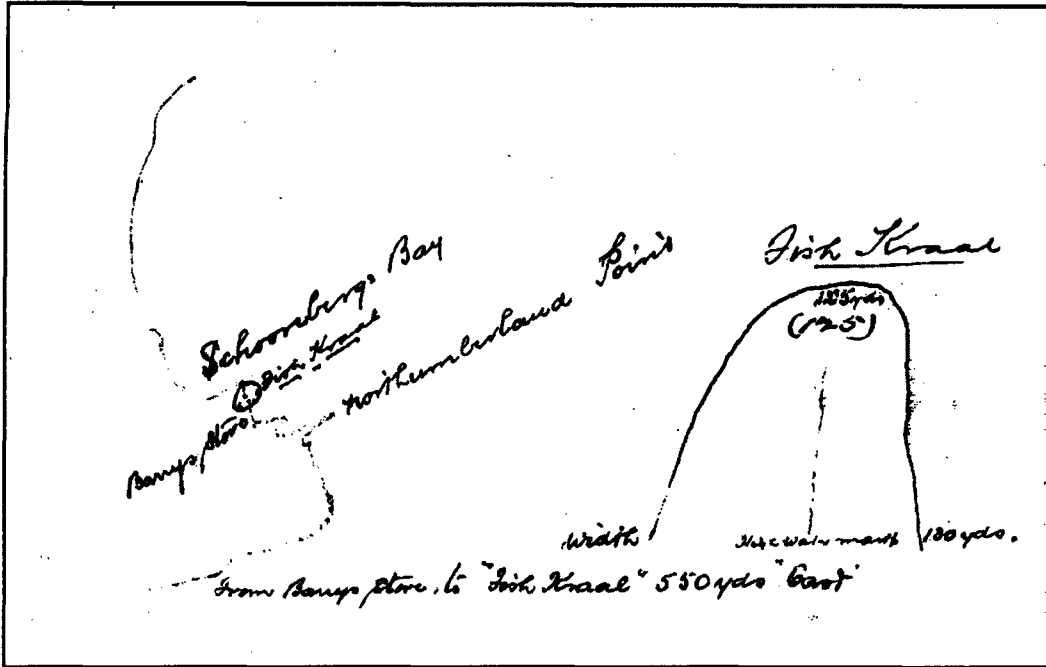 Schoonbergs Bay
Fish Kraal
Barrys Store
Northumberland Point
Fish Kraal
125 yds
(125)
Width
water mark
130 yds.
From Barrys Store. to "Fish Kraal" 550 yds East